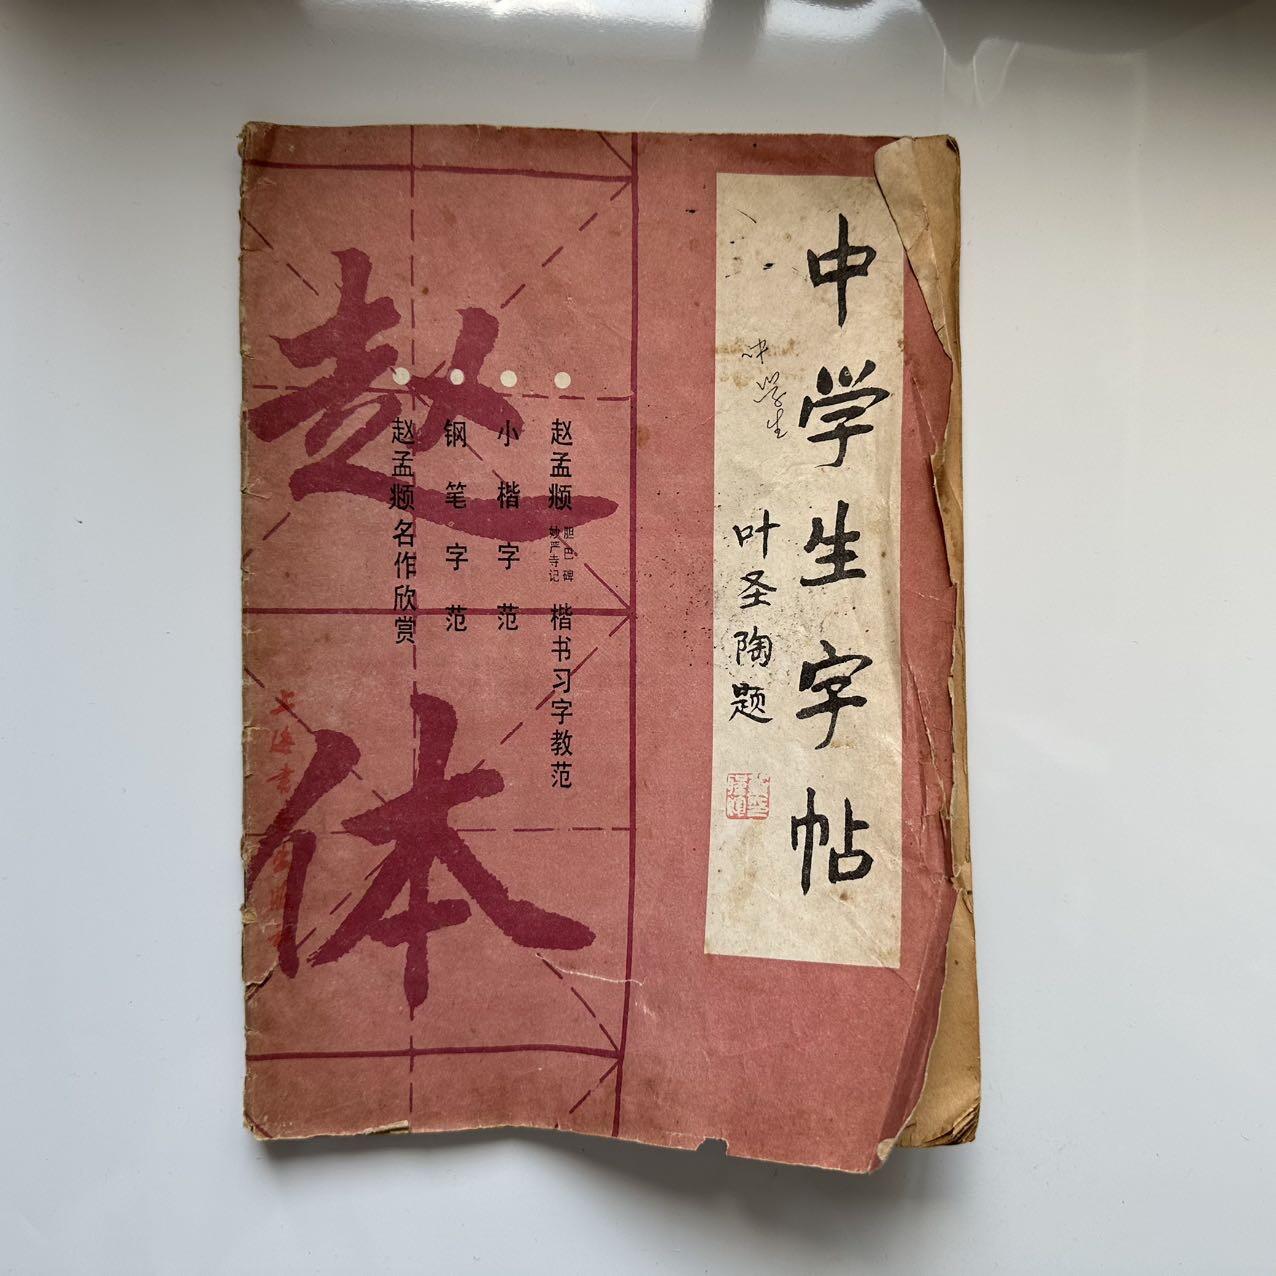 中学生字帖
叶圣陶题
中学生
赵孟頫 胆巴碑 妙严寺记 楷书习字教范
小楷字范
钢笔字范
赵孟頫名作欣赏
赵体
上海书